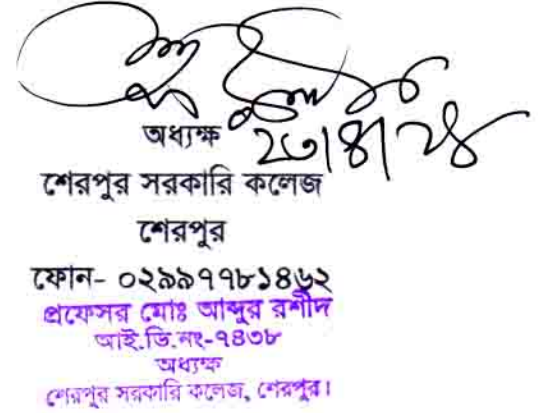 অধ্যক্ষ
২৩/৪/২৪
শেরপুর সরকারি কলেজ
শেরপুর
ফোন- ০২৯৯৭৭৮১৪৬২
প্রফেসর মোঃ আব্দুর রশীদ
আই.ডি.নং-৭৪৩৮
অধ্যক্ষ
শেরপুর সরকারি কলেজ, শেরপুর।